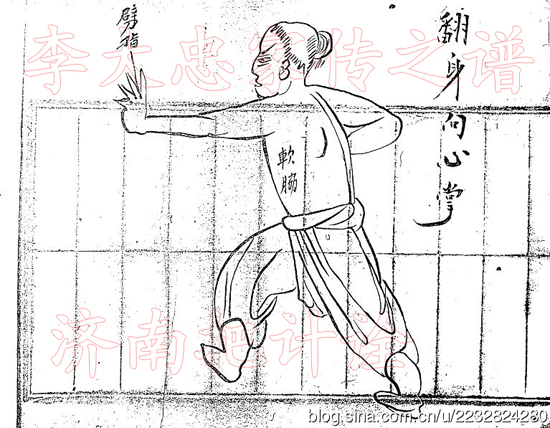 翻身向心掌
劈指
軟肠
李大忠家传之谱
济南赵计
blog.sina.com.cn/u/2232824230